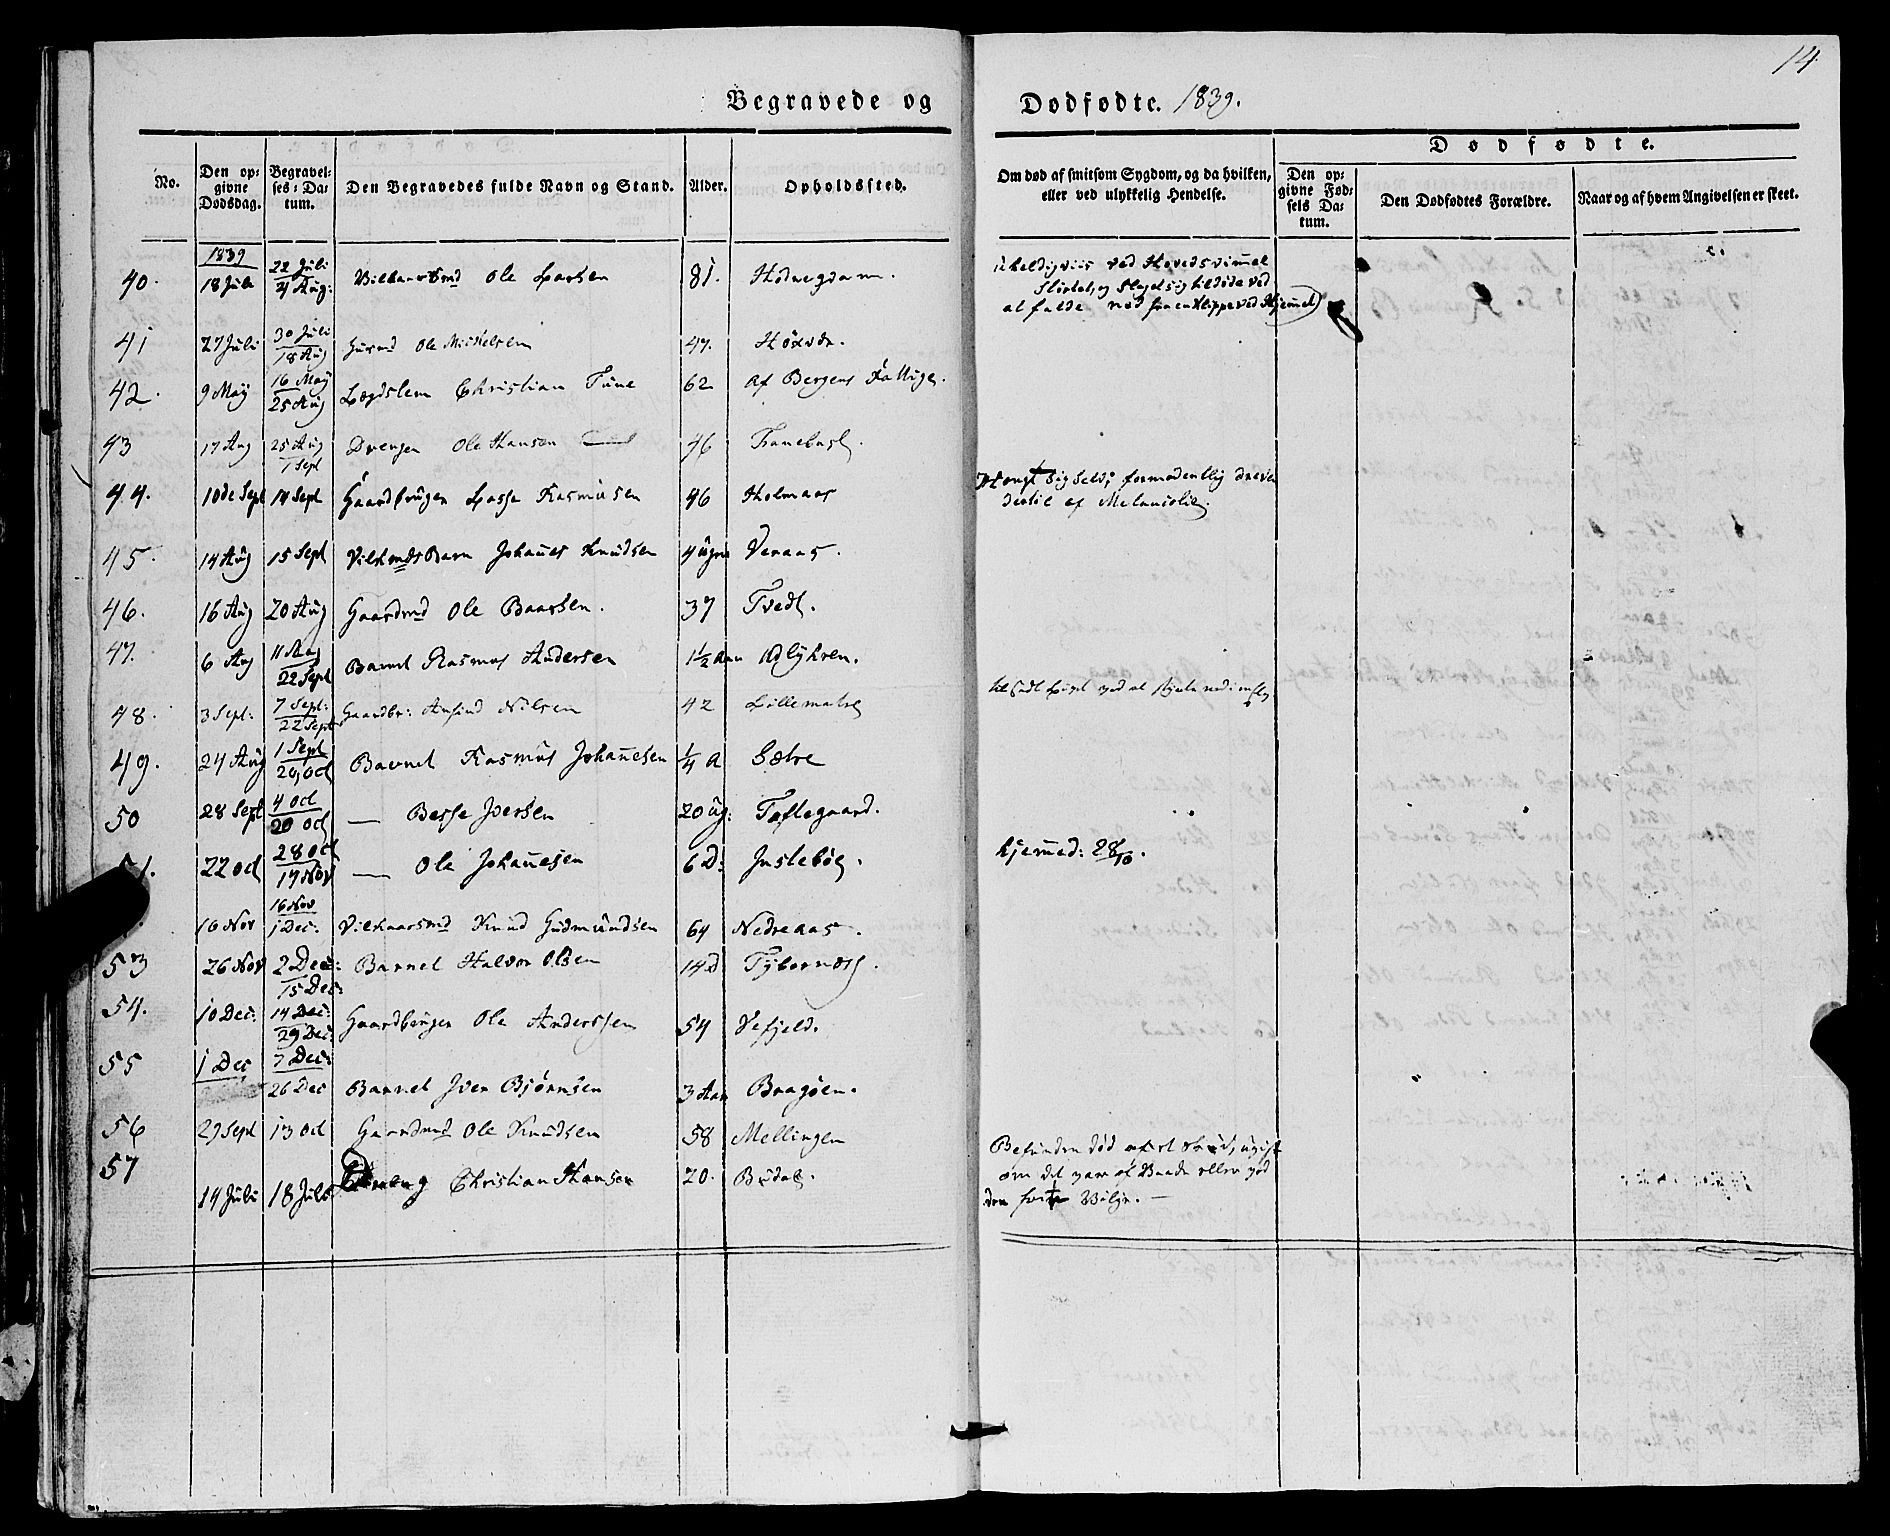 14.
Begravede og Dødfødte. 1839.
No. Den opgivne Dødsdag. Begravelses-Datum. Den Begravedes fulde Navn og Stand. Alder. Opholdssted. Om død af smitsom Sygdom, og da hvilken, eller ved ulykkelig Hendelse. Dødfødte. Den opgivne Fødsels Datum. Den Dødfødtes Forældre. Naar og af hvem Angivelsen er skeet.
1839
40. 18 Juli 22 Juli 4 Aug: Ole Larsen 81. ved Hovedsvimmel
at falde ned fra en Klippe ved Hjemmet)
41 27 Juli 30 Juli 18 Aug Ole Mickelsen 47.
42. 9 May 16 May 25 Aug Lægdslem Christian Tune 62 Af Bergens Fattige.
43 17 Aug 25 Aug 1 Sept Drengen Ole Hansen 46
44. 10de Sept 14 Sept Gaardbruger Lasse Rasmusen 46 Holmaas Hængt sig selv; formodentlig dreven
dertil af Melancolie.
45. 14 Aug 15 Sept Johannes Knudsen 4 Ugr Veraas.
46. 16 Aug 20 Aug Gaardmd Ole Baarsen. 37 Tvedt.
47. 6 Aug 11 Aug 22 Sept Barnet Rasmus Andersen 1½ Aar
48. 3 Sept: 7 Sept: 22 Sept Gaardbr: Nilsen 42 Lillematre
49. 24 Aug 1 Sept 20 Oct Barnet Rasmus Johannesen ¼ A Sætre
50 28 Sept 4 Oct 20 Oct — Besse Iversen 20 Ug: Toftegaard.
51. 22 Oct 28 Oct 17 Nov — Ole Johannesen 6 D: hjemmed: 28/10.
10 Nov 16 Nov 1 Dec. Vilkaarsmd Knud Gudmundsen 64 Nedreaas.
53 26 Nov 2 Dec: 15 Dec: Barnet Halvor Olsen 14 D
54. 10 Dec: 14 Dec: 29 Dec: Gaardbruger Ole Anderssen 54 Vefjeld.
55 1 Dec 7 Dec: 26 Dec Barnet Iver Bjørnsen 3 Aar Bragøen.
56 29 Sept 13 Oct Gaardmd Ole Knudsen 58 Mellingen
57 14 Juli 18 Juli Dreng Christian Hansen 20. Budal. Befunden død af et Skud, uvist
om det var af Vaade eller ved
den frie Vilje. —